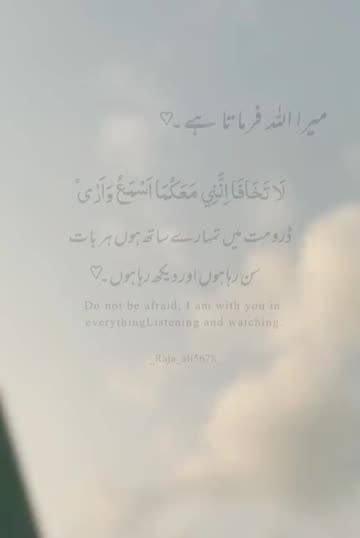 میرا اللہ فرماتا ہے ۔♡
لَا تَخَافَا اِنَّنِي مَعَكُمَا اَسْمَعُ وَاَرٰىْ
ڈرو مت میں تمہارے ساتھ ہوں ہر بات
سن رہا ہوں اور دیکھ رہا ہوں ۔♡
Do not be afraid, I am with you in
everythingListening and watching.
_Raja_ali5628_